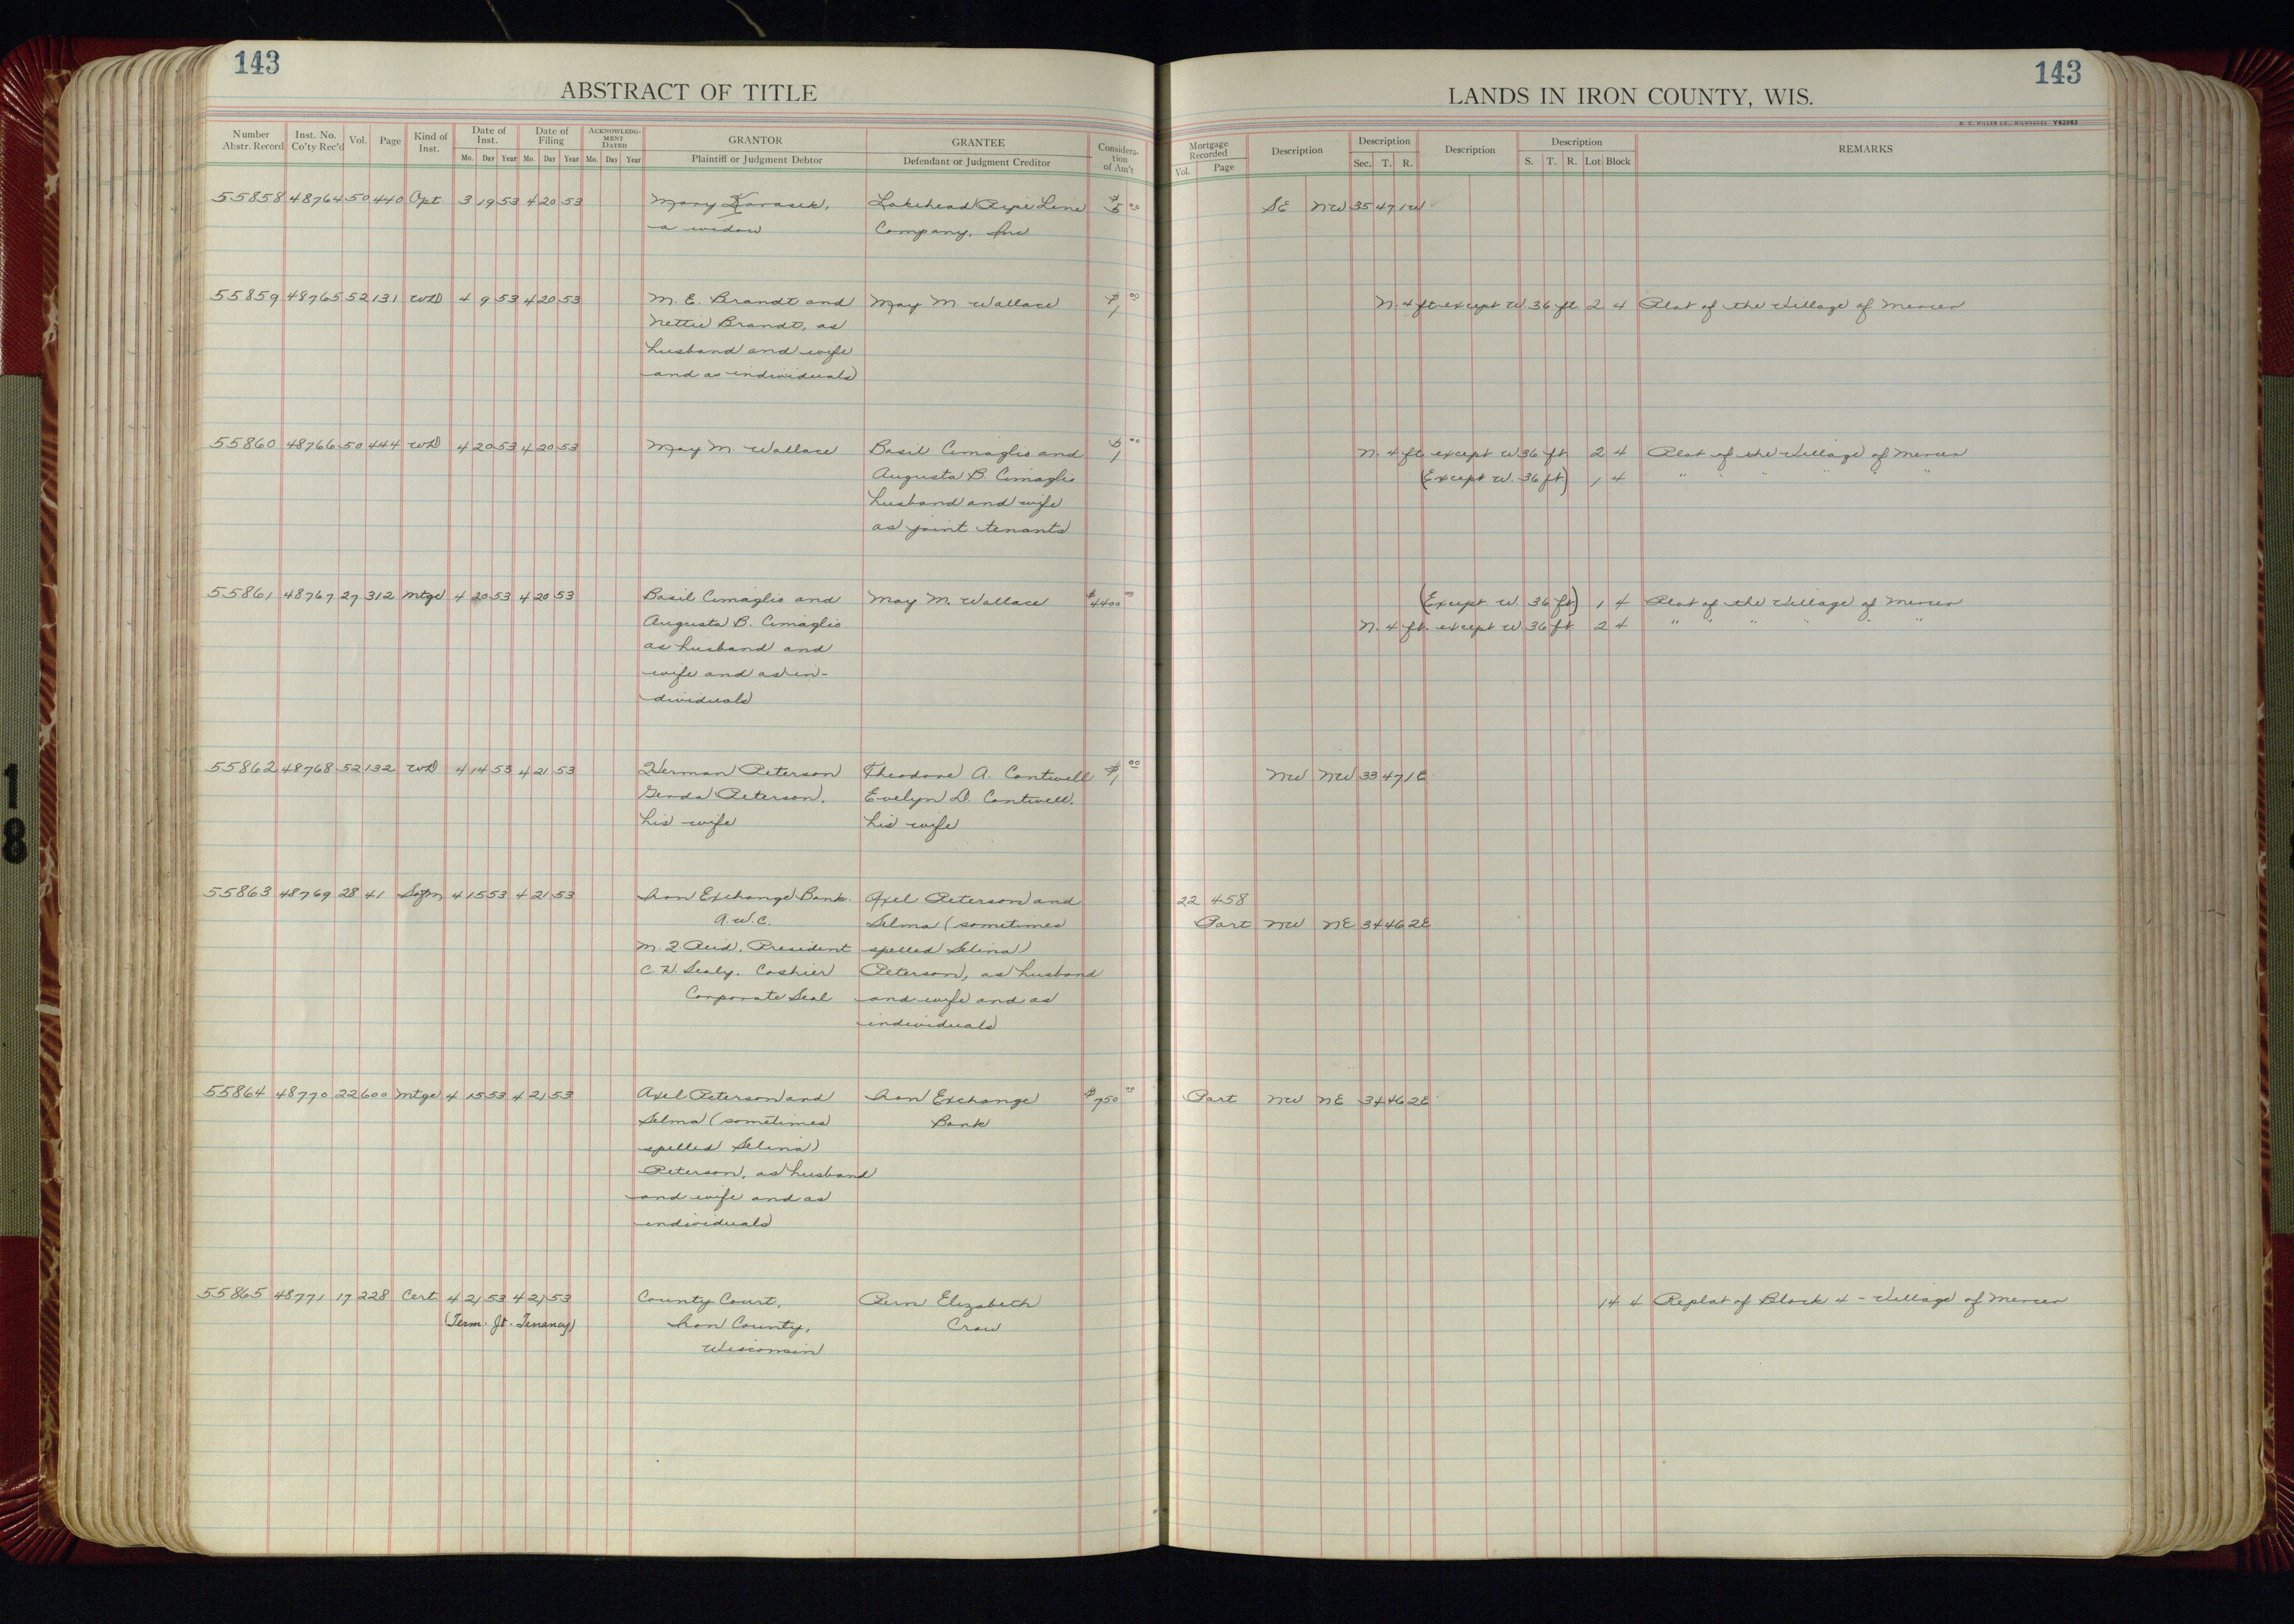 143
ABSTRACT OF TITLE
Number Abstr. Record
Inst. No. Co'ty Rec'd
Vol.
Page
Kind of Inst.
Date of Inst.
Mo. Day Year
Date of Filing
Mo. Day Year
ACKNOWLEDG-MENT DATED
Mo. Day Year
GRANTOR
Plaintiff or Judgment Debtor
GRANTEE
Defendant or Judgment Creditor
Considera-tion of Am't
143
LANDS IN IRON COUNTY, WIS.
Mortgage Recorded
Vol. Page
Description
Description
Sec. T. R.
Description
Description
S. T. R. Lot Block
REMARKS
55858 48764 50 440 Opt. 3 19 53 4 20 53 Mary Karasek, Lakehead Pipe Line $5 00 SE NW 35 47 1W
a widow Company, Inc
55859 48765 52 131 WD 4 9 53 4 20 53 M. E. Brandt and May M. Wallace $1 00 N. 4 ft except W 36 ft 2 4 Plat of the Village of Mercer
Nettie Brandt, as
husband and wife
and as individuals
55860 48766 50 444 WD 4 20 53 4 20 53 May M. Wallace Basil Cimaglio and $1 00 N. 4 ft. except W 36 ft 2 4 Plat of the Village of Mercer
Augusta B. Cimaglio (Except W. 36 ft) 1 4 " " " " "
husband and wife
as joint tenants
55861 48767 27 312 Mtge 4 20 53 4 20 53 Basil Cimaglio and May M. Wallace $4400 00 (Except W. 36 ft) 1 4 Plat of the Village of Mercer
Augusta B. Cimaglio N. 4 ft. except W 36 ft. 2 4 " " " " "
as husband and
wife and as in-
dividuals
55862 48768 52 132 WD 4 14 53 4 21 53 Herman Peterson Theodore A. Contwell $1 00 NW NW 33 47 1E
Gerda Peterson, Evelyn D. Contwell,
his wife his wife
55863 48769 28 41 4 15 53 4 21 53 Iron Exchange Bank Axel Peterson and 22 458
A.W.C. Selma (sometimes Part NW NE 34 46 2E
President spelled Selina)
Cashier Peterson, as husband
Corporate Seal and wife and as
individuals
55864 48770 22 600 Mtge 4 15 53 4 21 53 Axel Peterson and Iron Exchange $750 00 Part NW NE 34 46 2E
Selma (sometimes Bank
spelled Selina)
Peterson, as husband
and wife and as
individuals
55865 48771 17 228 Cert. 4 21 53 4 21 53 County Court, Elizabeth 14 4 Replat of Block 4 - Village of Mercer
(Term. Jt. Tenancy) Iron County, Crow
Wisconsin
18